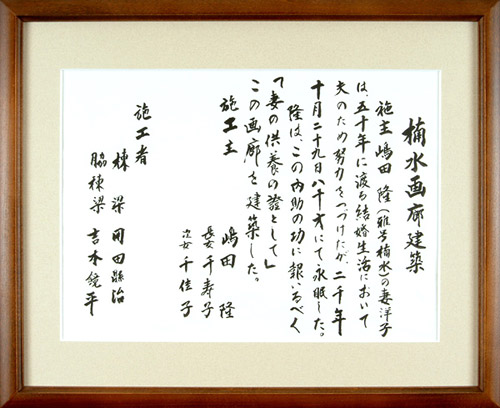 楠水画廊建築
施主嶋田隆(雅号楠水)の妻洋子
は、五十年に渡る結婚生活において
夫のため努力をつづけたが、二千年
十月二十九日八十才にて永眠した。
隆は、この内助の功に報いるべく
「妻の供養の證として」
この画廊を建築した。
施工主 嶋田 隆
長女 千寿子
次女 千佳子
施工者
棟梁 岡田 治
脇棟梁 吉木 平